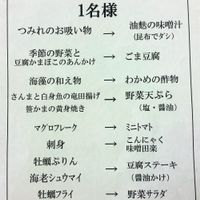 1名様
つみれのお吸い物 → 油麩の味噌汁
(昆布でダシ)
季節の野菜と
豆腐かまぼこのあんかけ → ごま豆腐
海藻の和え物 → わかめの酢物
さんまと白身魚の竜田揚げ
笹かまの黄身焼き → 野菜天ぷら
(塩・醤油)
マグロフレーク → ミニトマト
刺身 → こんにゃく
味噌田楽
牡蠣ぷりん
海老シュウマイ → 豆腐ステーキ
(醤油かけ)
牡蠣フライ → 野菜サラダ